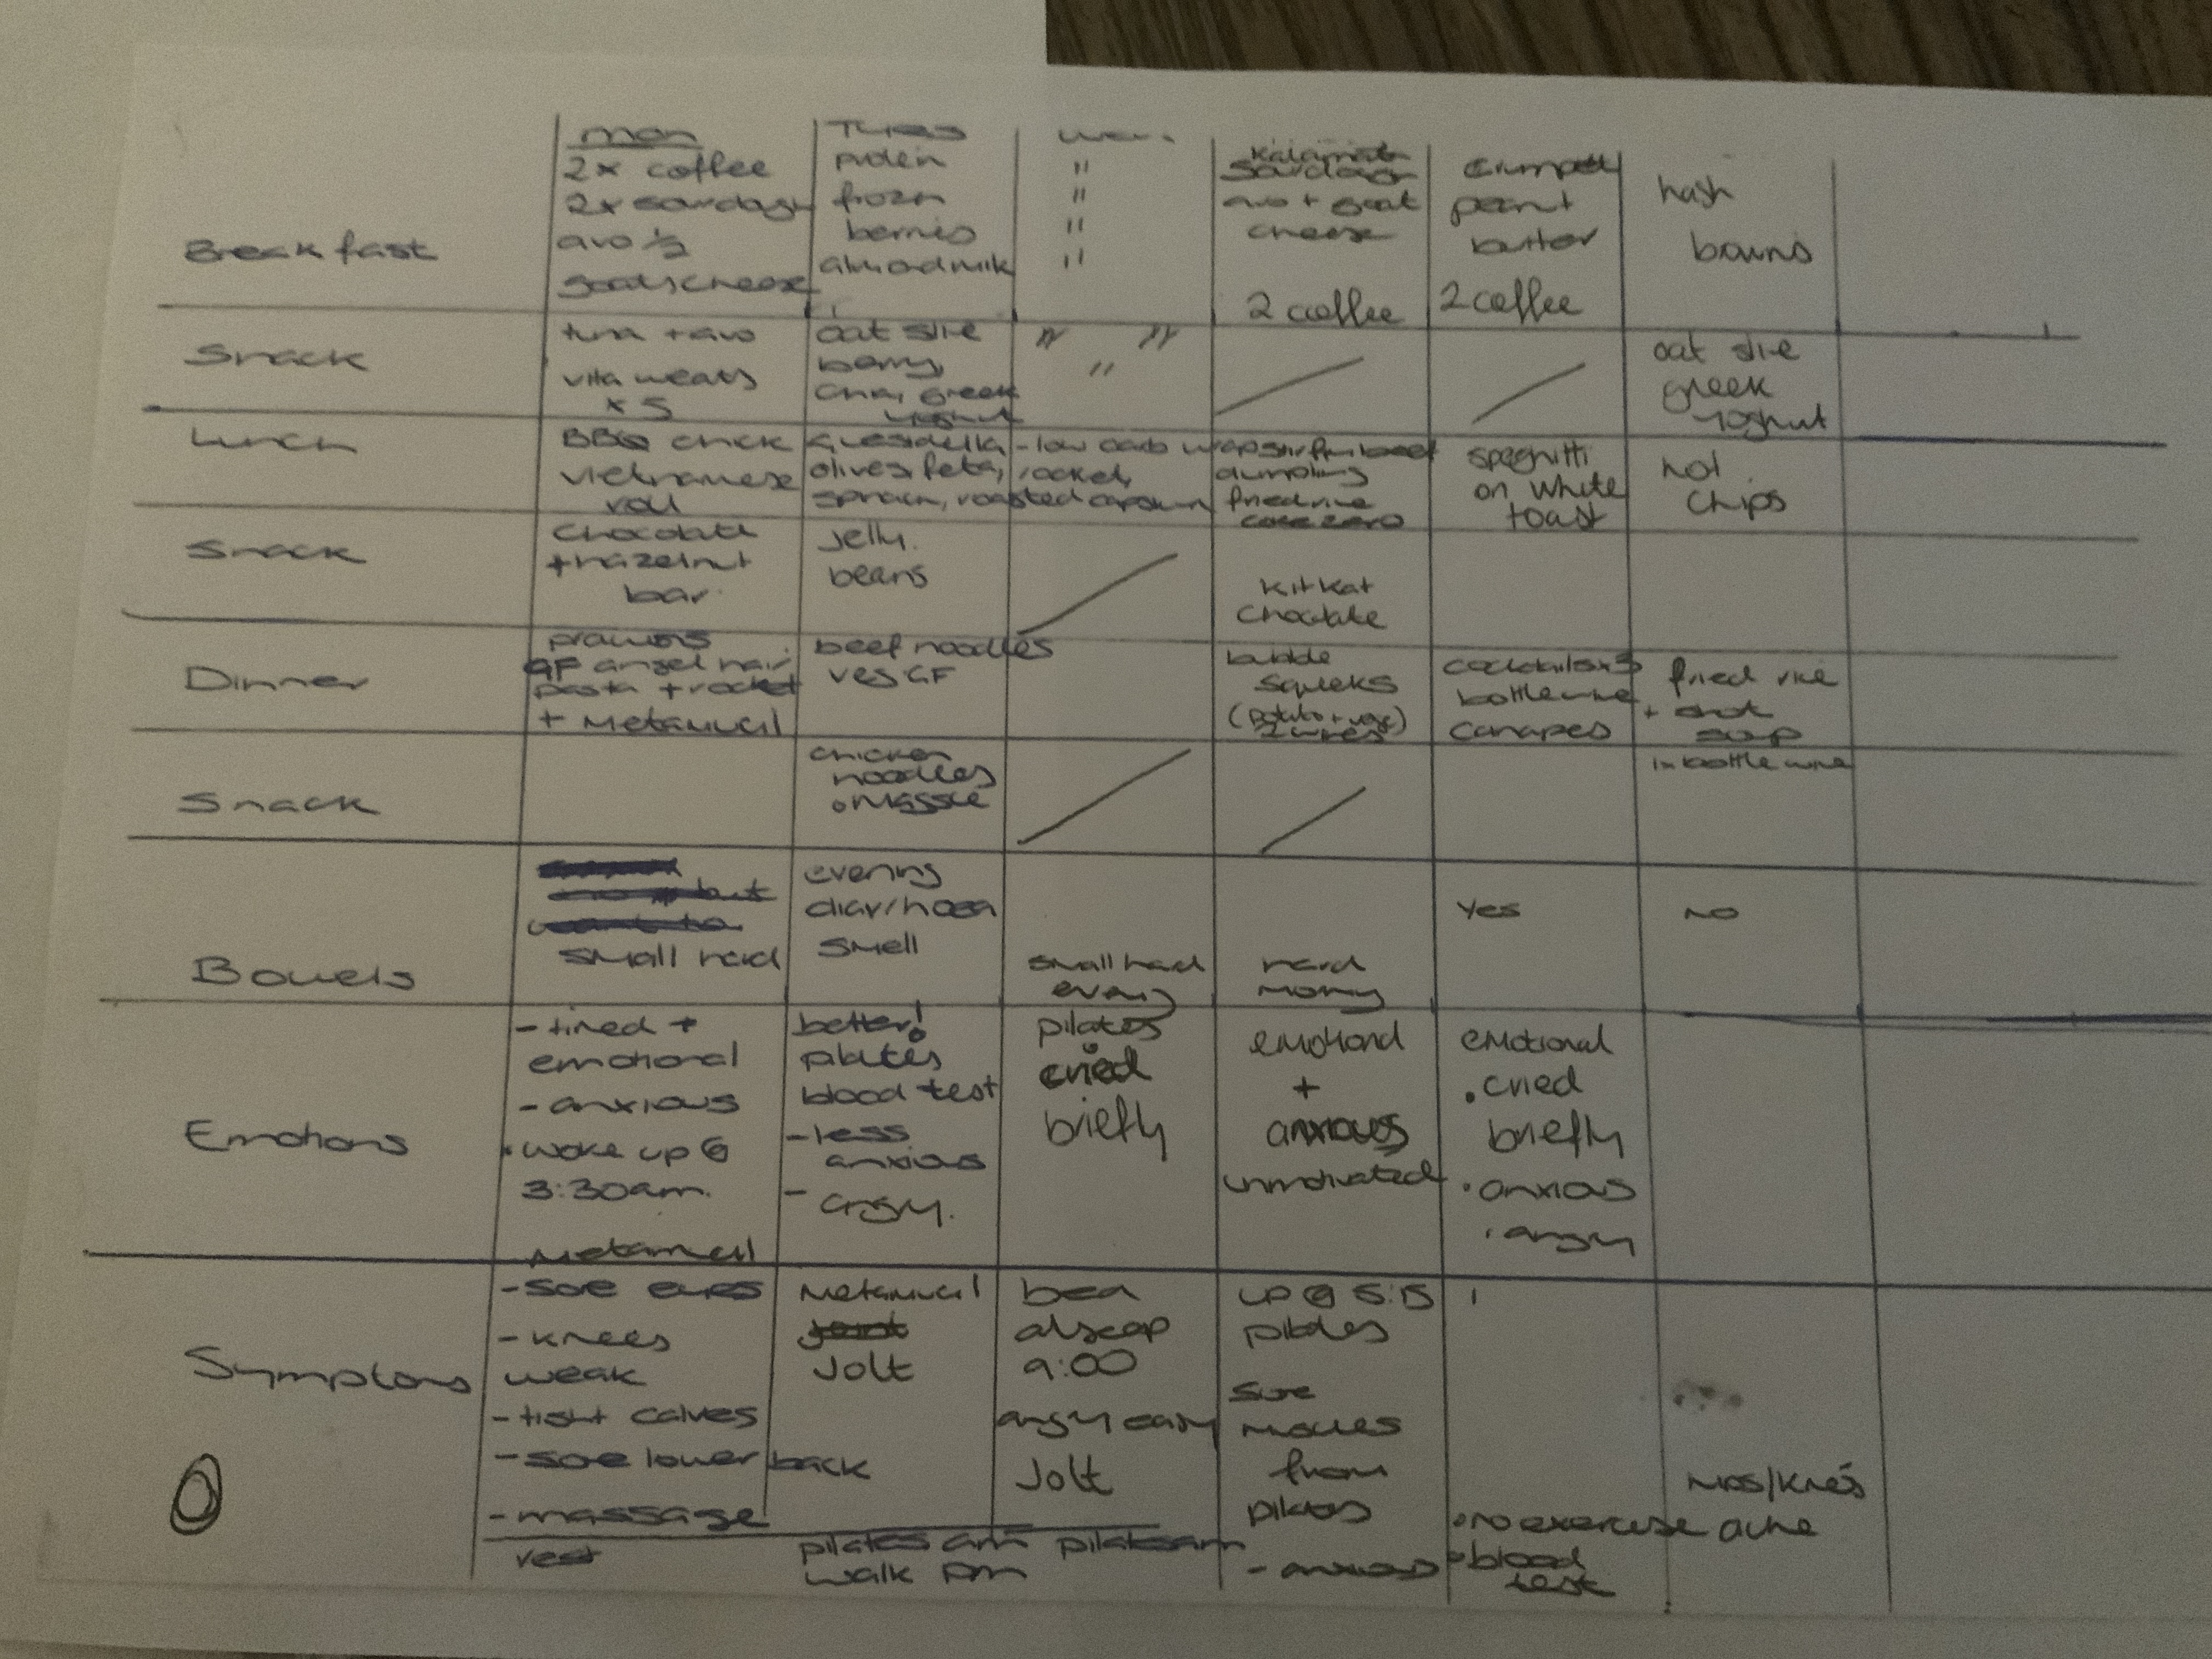 mon
Tues
2x coffee
2x sourdough
avo 1/2
goats cheese
protein
frozen
berries
almond milk
"
"
"
"
Kalamata
Sourdough
avo + goat
cheese
2 coffee
crumpets
peanut
butter
2 coffee
hash
browns
Breakfast
Snack
tuna + avo
vita weats
x 5
oat slice
berry,
chia, greek
yoghut
" "
"
oat slice
greek
yoghut
Lunch
BBQ chick
vietnamese
roll
Quesidella - low carb wrap
olives, feta, rocket,
spinach, roasted capsicum
stir fri beef
dumpling
fried rice
coke zero
spaghitti
on white
toast
hot
chips
Snack
Chocolate
+ hazelnut
bar
Jelly
beans
kitkat
Choclate
Dinner
prawns
GF angel hair
pasta + rocket
+ Metamucil
beef noodles
veg GF
bubble
squeks
(potato + veg)
2 wines
cocktails x 3
bottle wine
canapes
fried rice
+
soup
1x bottle wine
Snack
chicken
noodles
Bowels
but
want to
small hard
evening
diarrhoea
smell
small hard
evening
hard
morng
yes
no
Emotions
- tired +
emotional
- anxious
• woke up @
3:30am.
Metamucil
better!
pilates
blood test
- less
anxious
- angry.
pilates
cried
briefly
emotional
+
anxious
unmotivated
emotional
• cried
briefly
• anxious
• angry
Symptons
- sore eyes
- knees
weak
- tight calves
- sore lower back
- massage
rest
Metamucil
Jolt
pilates am
walk pm
bed
alseep
9:00
angry easy
Jolt
pilates am
up @ 5:15
pilates
sore
from
pilates
- anxious
• no exercise
• blood
test
hips/knees
ache